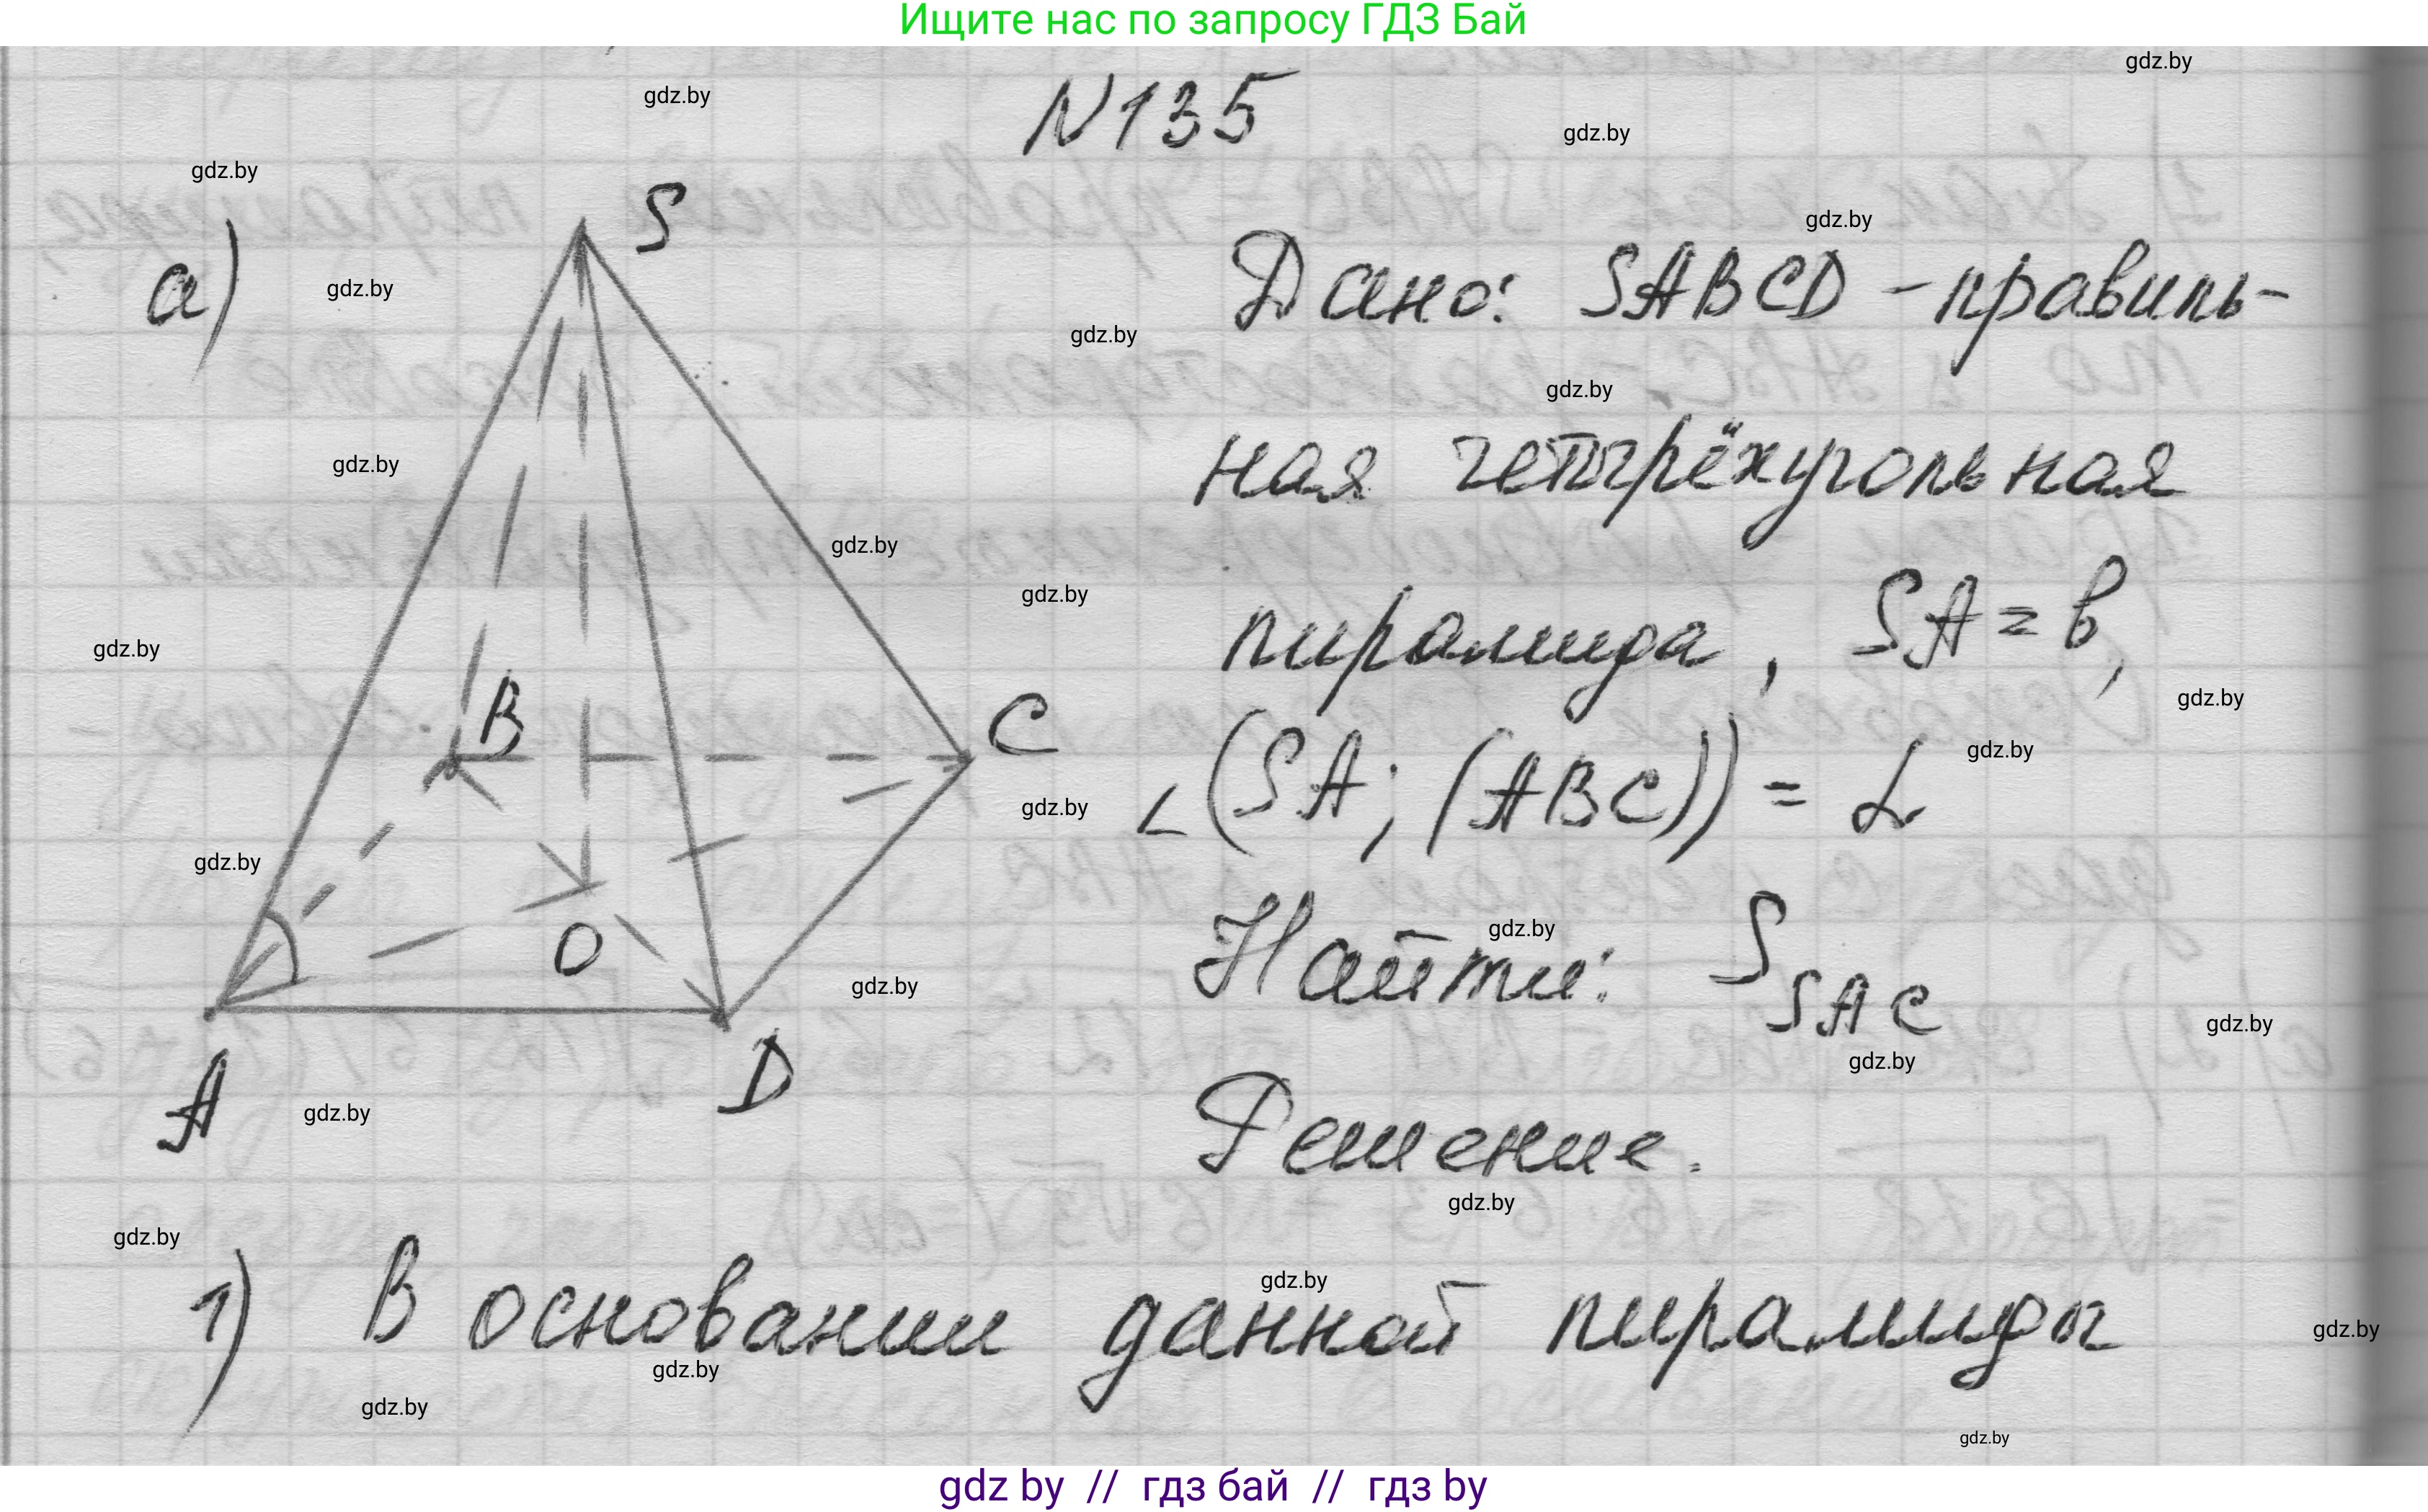 Ищите нас по запросу ГДЗ Бай
gdz.by
gdz.by
N135
gdz.by
gdz.by
S
gdz.by
а)
gdz.by
Дано: SABCD - правиль-
gdz.by
gdz.by
ная четырёхугольная
gdz.by
gdz.by
gdz.by
пирамида, SA = в,
gdz.by
B
C
gdz.by
∠(SA; (ABC)) = α
gdz.by
gdz.by
gdz.by
O
Найти: S SAC
gdz.by
gdz.by
gdz.by
gdz.by
A
D
gdz.by
Решение.
gdz.by
gdz.by
1) В основании данной пирамиды
gdz.by
gdz.by
gdz.by
gdz.by
gdz.by
gdz by // гдз бай // гдз by